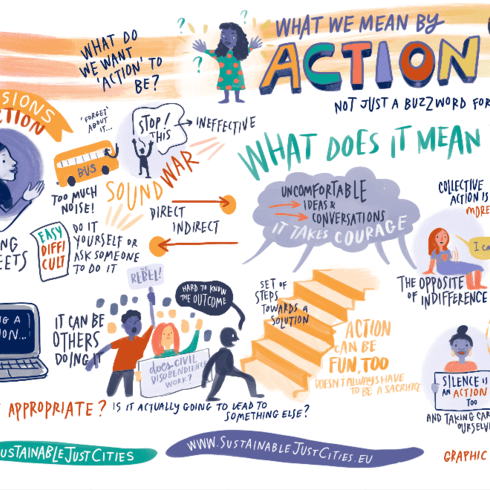 WHAT WE MEAN BY
ACTION
NOT JUST A BUZZWORD FOR
WHAT DO
WE WANT
'ACTION' TO
BE?
'FORGET'
ABOUT
IT...
BUS
TOO MUCH
NOISE!
STOP!
THIS
INEFFECTIVE
SOUND
WAR
DIRECT
INDIRECT
EASY
DIFFI
CULT
DO IT
YOURSELF OR
ASK SOMEONE
TO DO IT
WHAT DOES IT MEAN
UNCOMFORTABLE
IDEAS &
CONVERSATIONS
IT TAKES COURAGE
COLLECTIVE
ACTION IS
MORE
I C
THE OPPOSITE
OF INDIFFERENCE
IT CAN BE
OTHERS
DOING IT
REBEL!
HARD TO KNOW
THE OUTCOME
does CIVIL
DISOBEDIENCE
WORK?
SET OF
STEPS
TOWARDS A
SOLUTION
ACTION
CAN BE
FUN, TOO
DOESN'T ALWAYS HAVE
TO BE A SACRIFICE
SILENCE IS
AN ACTION
TOO
AND TAKING CAR
OURSELV
APPROPRIATE? IS IT ACTUALLY GOING TO LEAD TO
SOMETHING ELSE?
USTAINABLEJUSTCITIES
WWW.SUSTAINABLEJUSTCITIES.EU
GRAPHIC